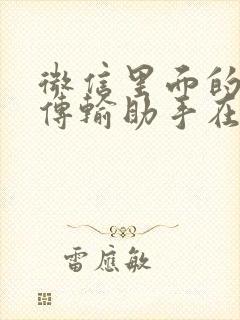 微信里面的
傳輸助手在
雷應敏